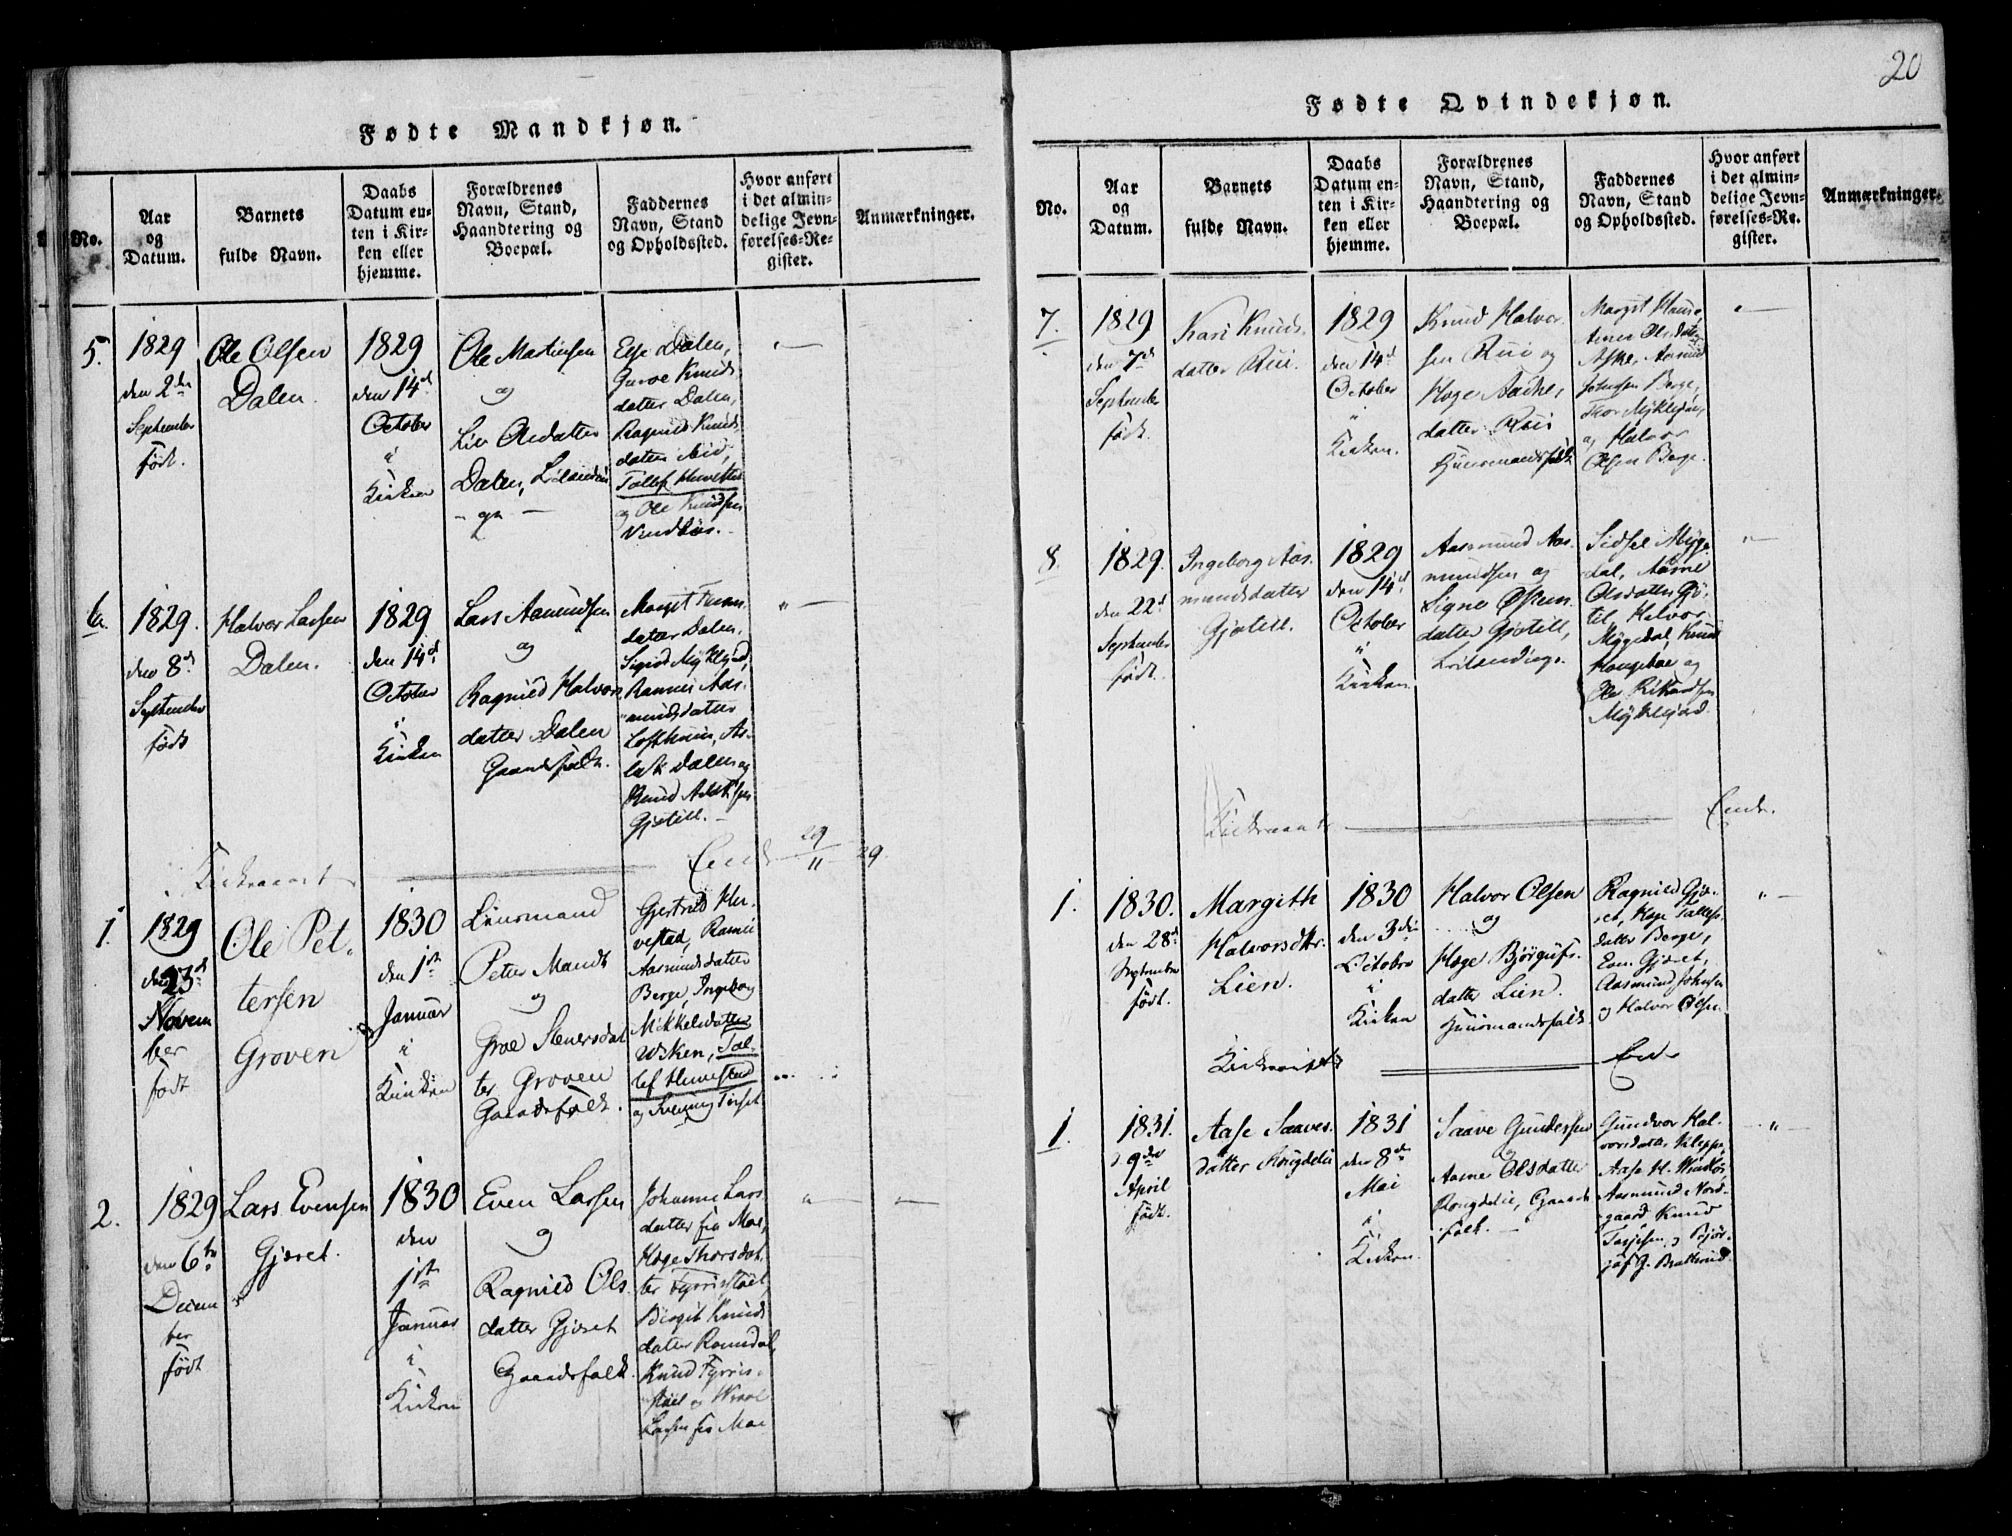 20
Fødte Mandkjøn.
No.
Aar
og
Datum.
Barnets
fulde Navn.
Daabs
Datum en-
ten i Kir-
ken eller
hjemme.
Forældrenes
Navn, Stand,
Haandtering og
Boepæl.
Faddernes
Navn, Stand
og Opholdssted.
Hvor anført
i det almin-
delige Jevn-
førelses-Re-
gister.
Anmærkninger.
5.
1829
den 2den
September
født.
Ole Olsen
Dalen.
1829
den 14d
October
i
Kirken
Ole
og
Liv Olsdatter
Dalen,
Dalen,
Gunvor Knuds
datter Dalen,
Ragnild Knuds
datter
Tallef Hvervestad
og Ole Knudsen
6.
1829.
den 8d
September
født
Halvor Larsen
Dalen.
1829
den 14d
October
i
Kirken
Lars Aamundsen
og
Ragnild Halvors
datter Dalen
Gaardsfolk.
Margit
datter Dalen,
Sigrid Mykland,
Aas-
mundsdatter
Lofthuus, As-
lak Dalen og
Knud Aslaksen
Gjøtill.
Ende 29
11 29.
1.
1829
den 23d
Novem
ber
født
Ole Pet-
tersen
Groven
1830
den 1ste
Januar
i
Kirken
Lensmand
Peter Mandt
og
Groe
ter Groven
Gaardsfolk.
Gjertrud Her-
vestad,
Aasmundsdatter
Berge, Ingeborg
Mikkelsdatter
Tal-
lef Hvervestad
og
2.
1829
den 6te
Decem
ber
født
Lars Evensen
Gjøret.
1830
den
1ste
Januar
i
Kirken
Even Larsen
og
Ragnild Ols
datter Gjøret
Gaardsfolk.
Johanne Lars
datter fra Moe,
Hæge Thorsdat-
ter
Birgit Knuds
datter
Knud
og
Larsen fra Moe
Fødte Qvindekjøn.
No.
Aar
og
Datum.
Barnets
fulde Navn.
Daabs
Datum en-
ten i Kir-
ken eller
hjemme.
Forældrenes
Navn, Stand,
Haandtering og
Boepæl.
Faddernes
Navn, Stand
og Opholdssted.
Hvor anført
i det almin-
delige Jevn-
førelses-Re-
gister.
Anmærkninger.
7.
1829
den 7d
September
født.
Kari Knuds-
datter Rui.
1829
den 14d
October
i
Kirken.
Knud Halvor-
sen Rui og
Hæge
datter Rui
Huusmandsfolk
Margit
Olsdatter
Aasmund
Johnsen Berge,
Thor
og Halvor
Olsen Berge.
8.
1829.
den 22d
September
født.
Ingeborg Aas-
mundsdatter
Gjøtill.
1829
den 14d
October
i
Kirken.
Aasmund Aas-
mundsen og
Signe
datter Gjøtill,
Sidsel Myge-
dal, Aasne
Olsdatter Gjø-
til, Halvor
Mygedal, Knud
og
Ole
Ende.
1.
1830.
den 28d
September
født.
Margith
Halvorsdtr.
Lien.
1830
den 3die
Octobr
i
Kirken
Halvor Olsen
og
Hæge Bjørgufs-
datter Lien.
Huusmandsfolk
Ragnild Gjø-
ret, Hæge Tallefs-
datter Berge,
Even Gjøret,
Aasmund Johnsen
og Halvor Olsen
Ende
1.
1831.
9de
April
født.
Aase Saaves-
datter
1831
den 8de
Mai
i
Kirken.
Saave Gundersen
og
Aasne Olsdatter
Gaards
folk.
Gundvor Hal-
vorsdatter Kleppe,
Aase H.
Aasmund Nord-
gaard Knud